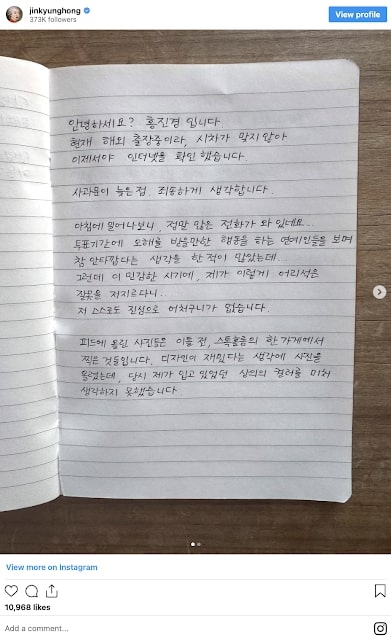 jinkyunghong
373K followers
View profile
안녕하세요? 홍진경 입니다
현재 해외 출장중이라, 시차가 맞지않아
이제서야 인터넷을 확인 했습니다.
사과문이 늦은점, 죄송하게 생각합니다.
아침에 일어나보니, 정말 많은 전화가 와 있네요..
투표기간에 오해를 받을만한 행동을 하는 연예인들을 보며
참 안타깝다는 생각을 한 적이 많았는데..
그런데 이 민감한 시기에, 제가 이렇게 어리석은
잘못을 저지르다니..
저 스스로도 진심으로 어처구니가 없습니다.
피드에 올린 사진들은 이틀 전, 스톡홀름의 한 가게에서
찍은 것들입니다. 디자인이 재밌다는 생각에 사진을
올렸는데, 당시 제가 입고 있었던 상의의 컬러를 미처
생각하지 못했습니다
View more on Instagram
10,968 likes
Add a comment...